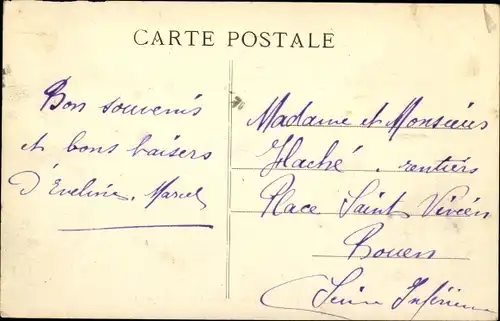 CARTE POSTALE
Bon souvenirs
et bons baisers
d'Eveline, Marcel
Madame et Monsieur
Haché, rentiers
Place Saint Vivien
Rouen
Seine Inférieure